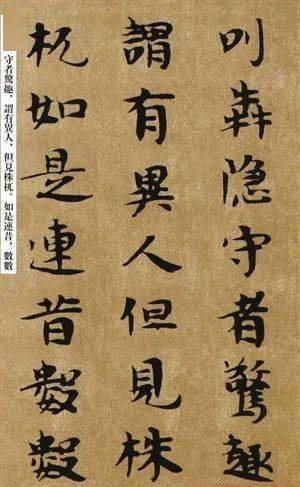 叫犇隐守者驚趣
謂有異人但見株
杌如是連昔數數
守者驚趣，謂有異人，但見株杌。如是連昔，數數